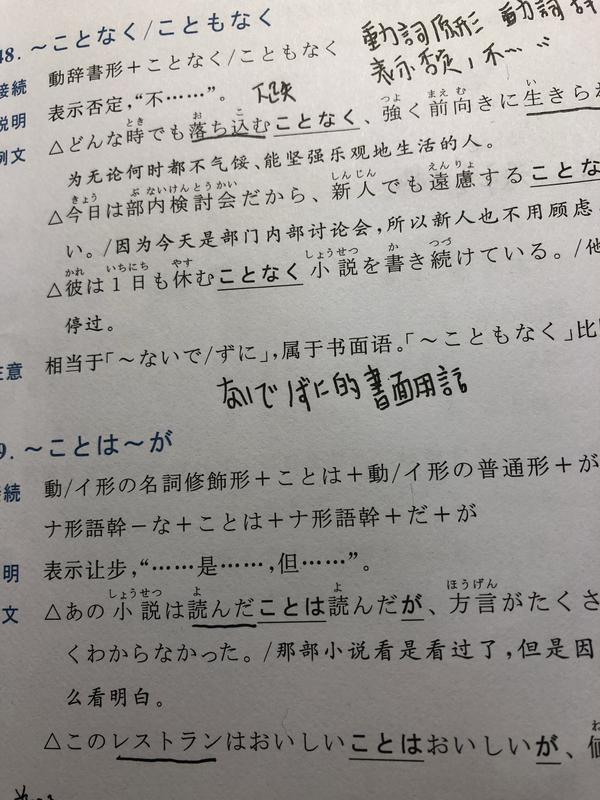 48. ～ことなく/こともなく
動詞原形 動詞辞
表示否定，不……
接続 動辞書形＋ことなく/こともなく
説明 表示否定，“不……”。
例文 △どんな時でも落ち込むことなく、強く前向きに生きられ
为无论何时都不气馁、能坚强乐观地生活的人。
△今日は部内検討会だから、新人でも遠慮することな
い。/因为今天是部门内部讨论会，所以新人也不用顾虑
△彼は1日も休むことなく小説を書き続けている。/他
停过。
注意 相当于「～ないで/ずに」，属于书面语。「～こともなく」比
ないで/ずに的書面用語
9. ～ことは～が
接続 動/イ形の名詞修飾形＋ことは＋動/イ形の普通形＋が
ナ形語幹－な＋ことは＋ナ形語幹＋だ＋が
明 表示让步，“……是……，但……”。
文 △あの小説は読んだことは読んだが、方言がたくさ
くわからなかった。/那部小说看是看过了，但是因
么看明白。
△このレストランはおいしいことはおいしいが、値